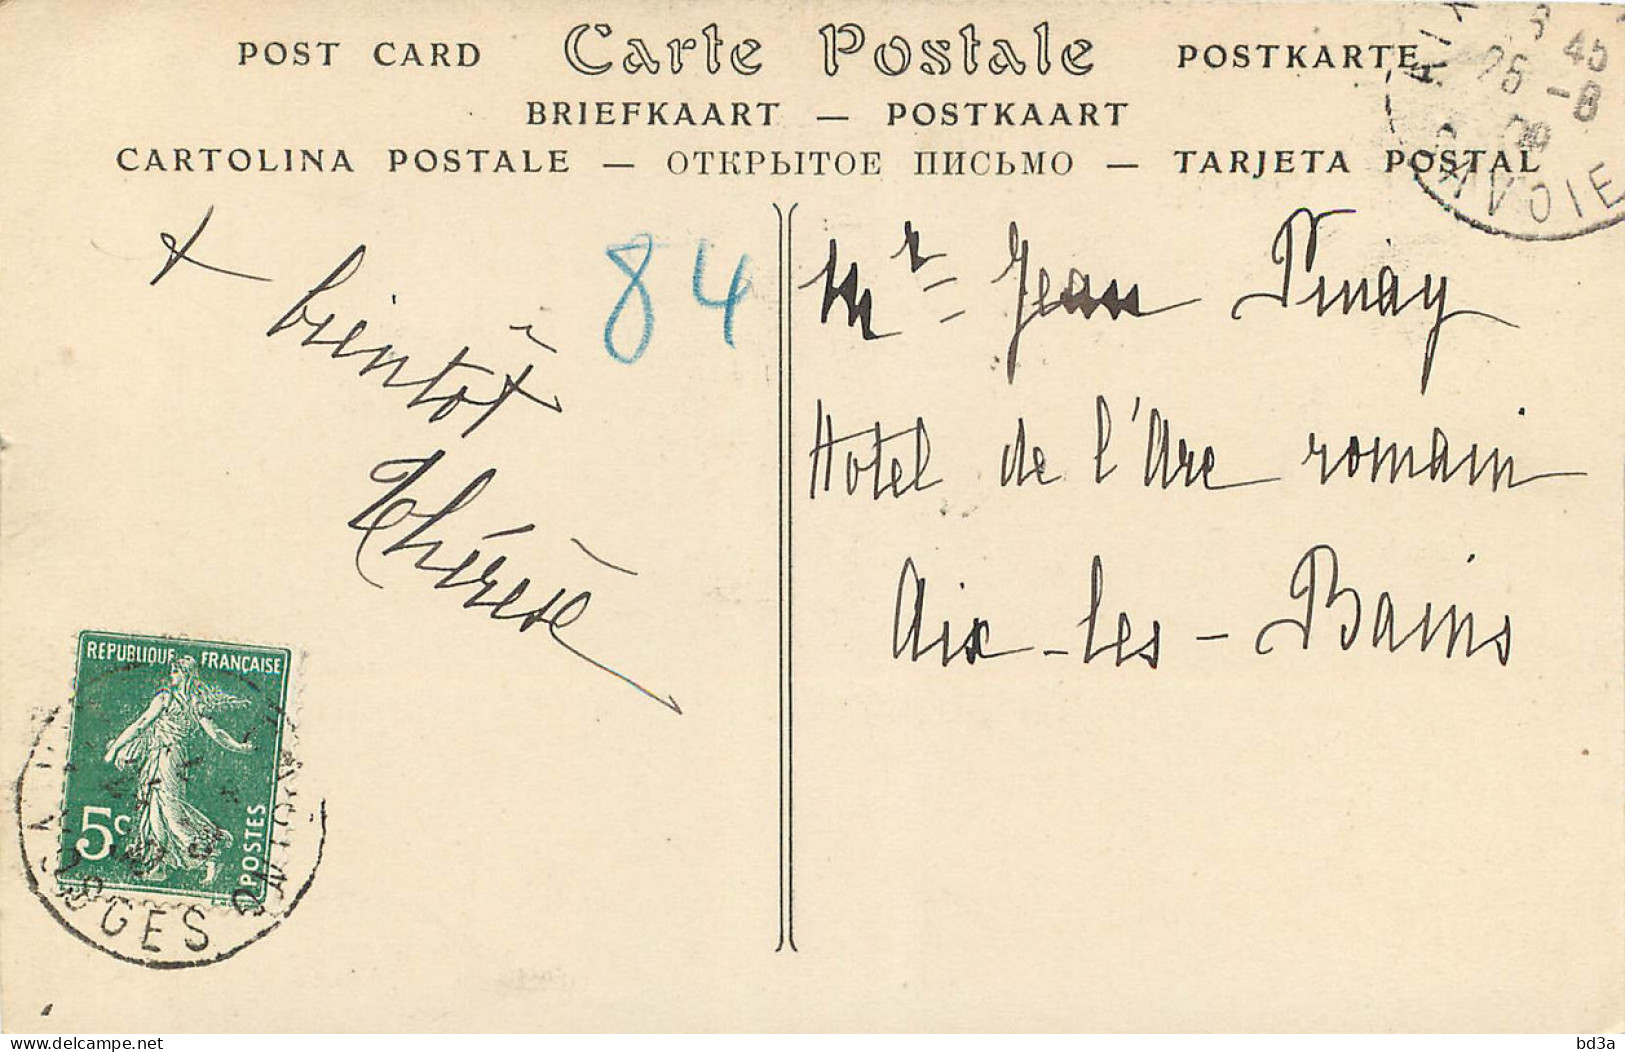 POST CARD Carte Postale POSTKARTE
BRIEFKAART — POSTKAART
CARTOLINA POSTALE — ОТКРЫТОЕ ПИСЬМО — TARJETA POSTAL
AIX
45
25 -8
SAVOIE
84
bientôt
Thérèse
Mr Jean Pinay
Hotel de l'Arc romain
Aix-les-Bains
REPUBLIQUE FRANÇAISE
5c
POSTES
bd3a